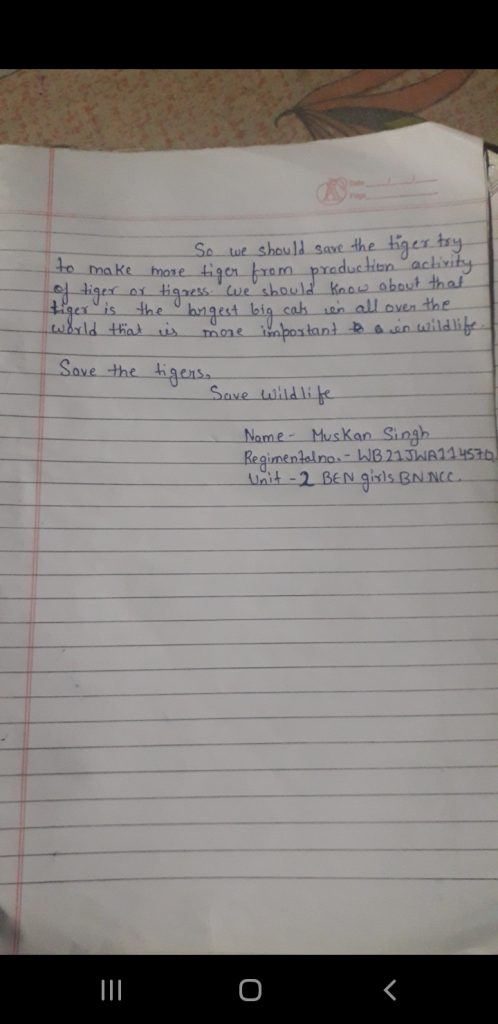 Date
Page
So we should save the tiger try
to make more tiger from production activity
of tiger or tigress. We should know about that
tiger is the largest big cat in all over the
world that is more important in wildlife.
Save the tigers,
Save wildlife
Name - Muskan Singh
Regimental no. - WB21JWA114570
Unit - 2 BEN girls BN NCC.